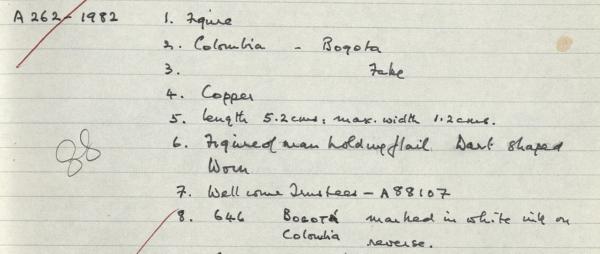 A 262-1982 1. Figure
2. Colombia - Bogota
3. Fake
4. Copper
5. length 5.2cms; max. width 1.2cms.
6. Figure of man holding flail Dart shaped
Worn
88
7. Wellcome Trustees - A88107
8. 646 BOGOTA marked in white ink on
Colombia reverse.